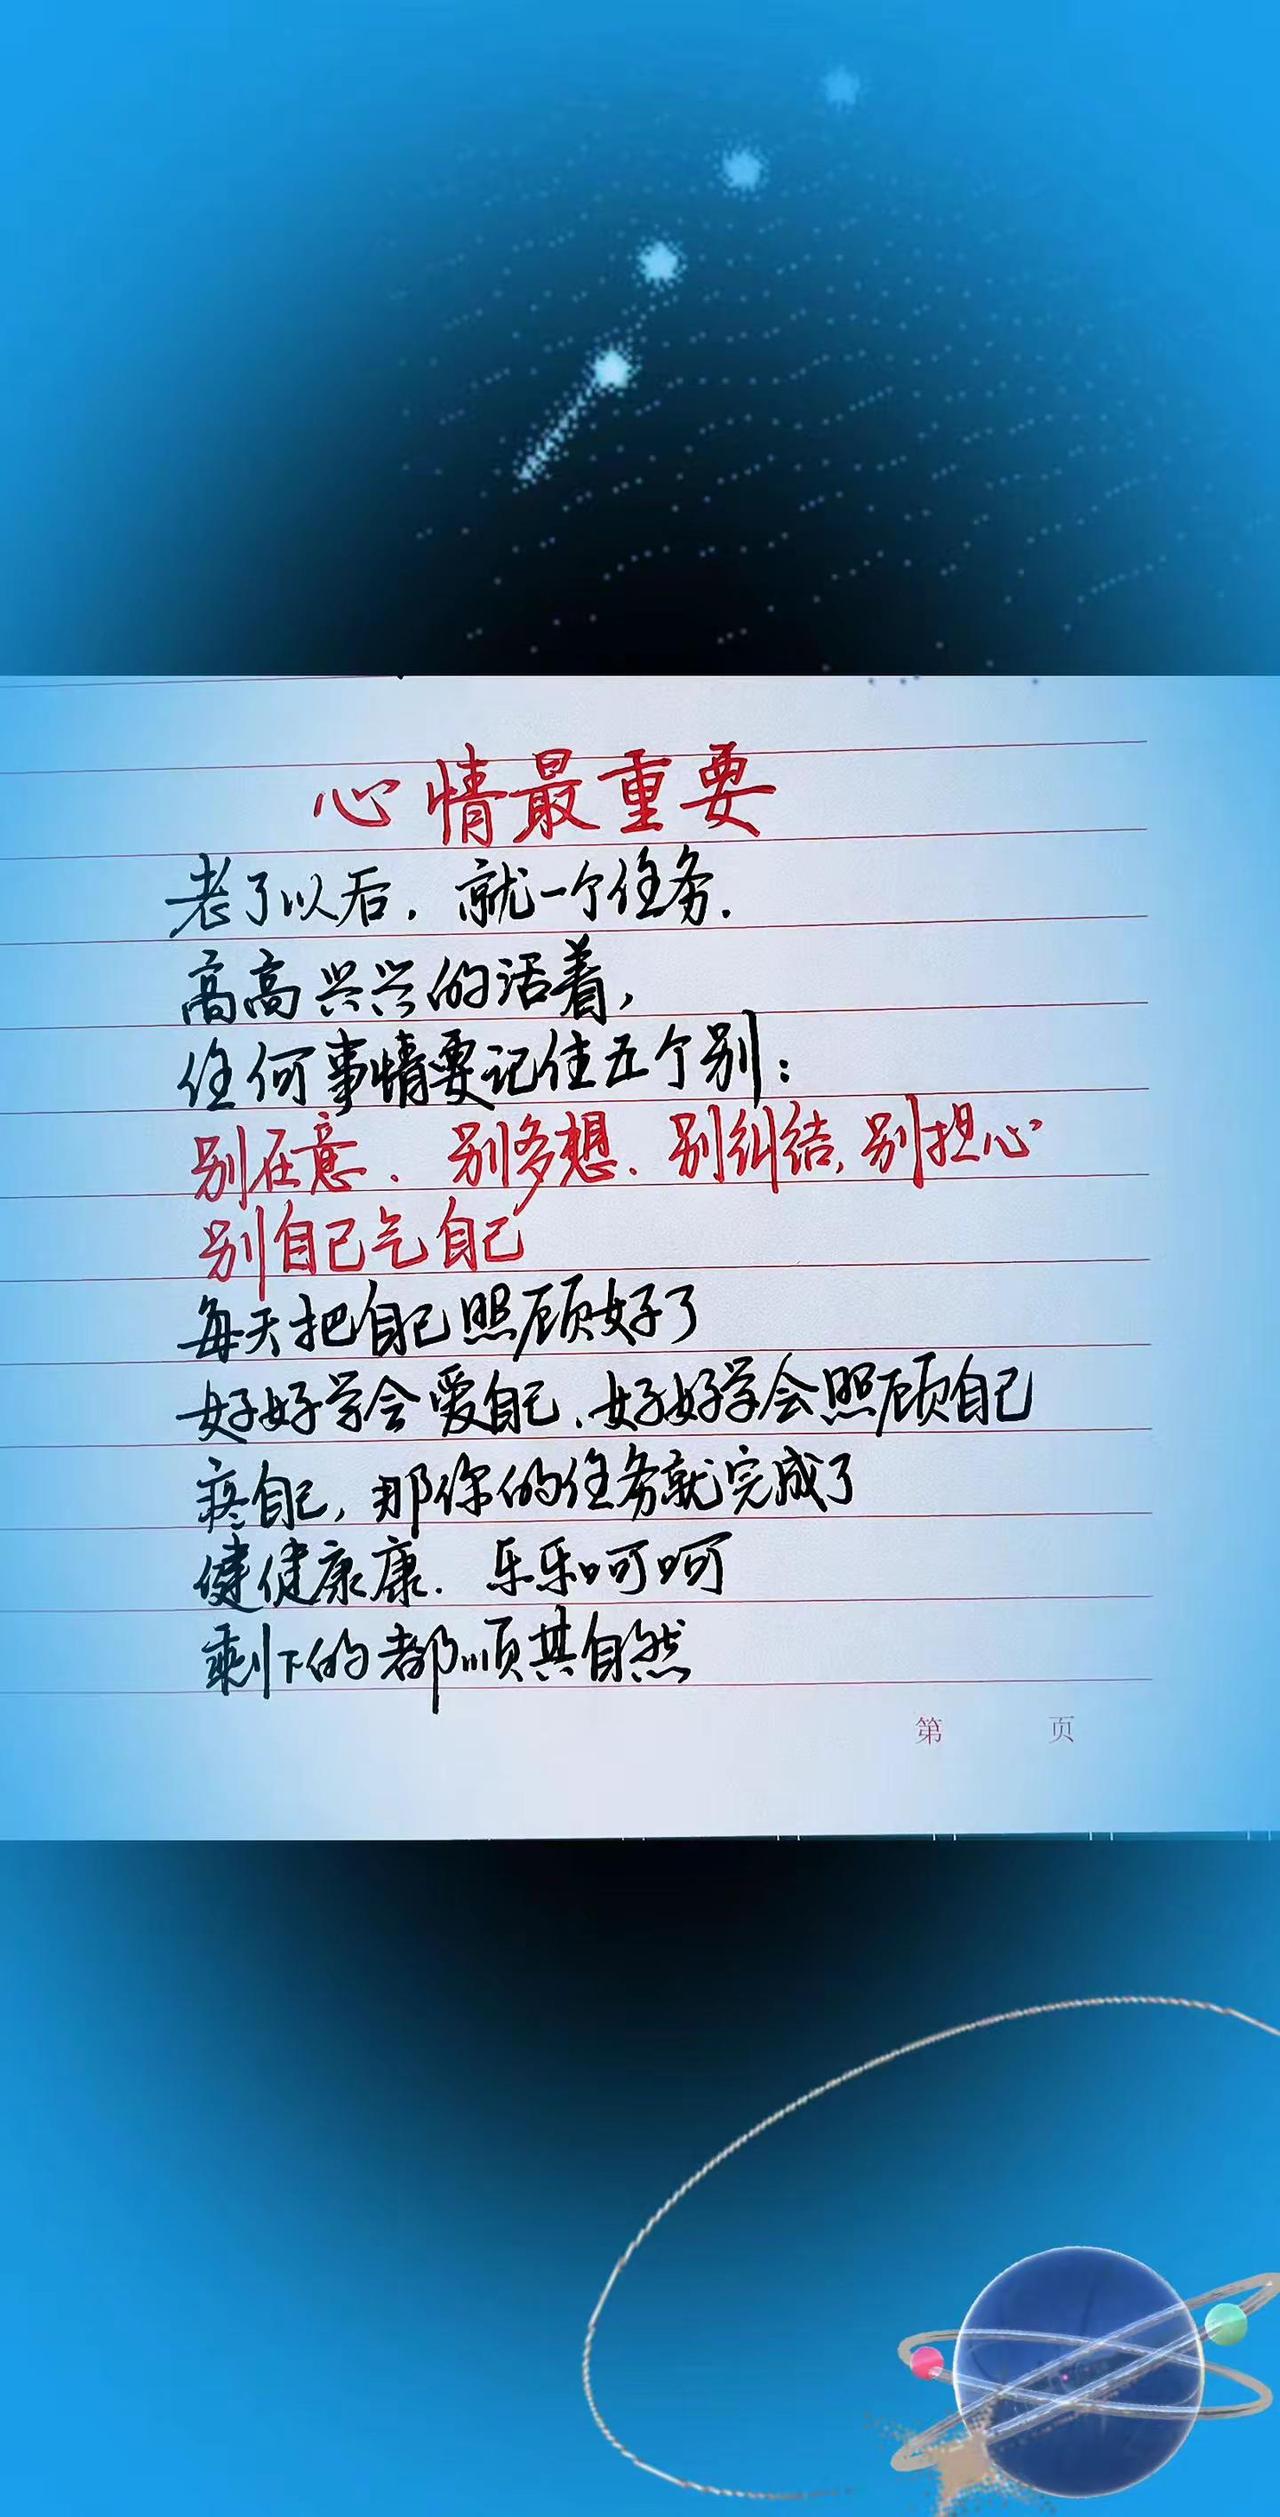 心情最重要
老了以后，就一个任务.
高高兴兴的活着，
任何事情要记住五个别：
别在意、别多想、别纠结，别担心
别自己气自己
每天把自己照顾好了
好好学会爱自己、好好学会照顾自己
疼自己，那你的任务就完成了
健健康康．乐乐呵呵
剩下的都顺其自然
第 页